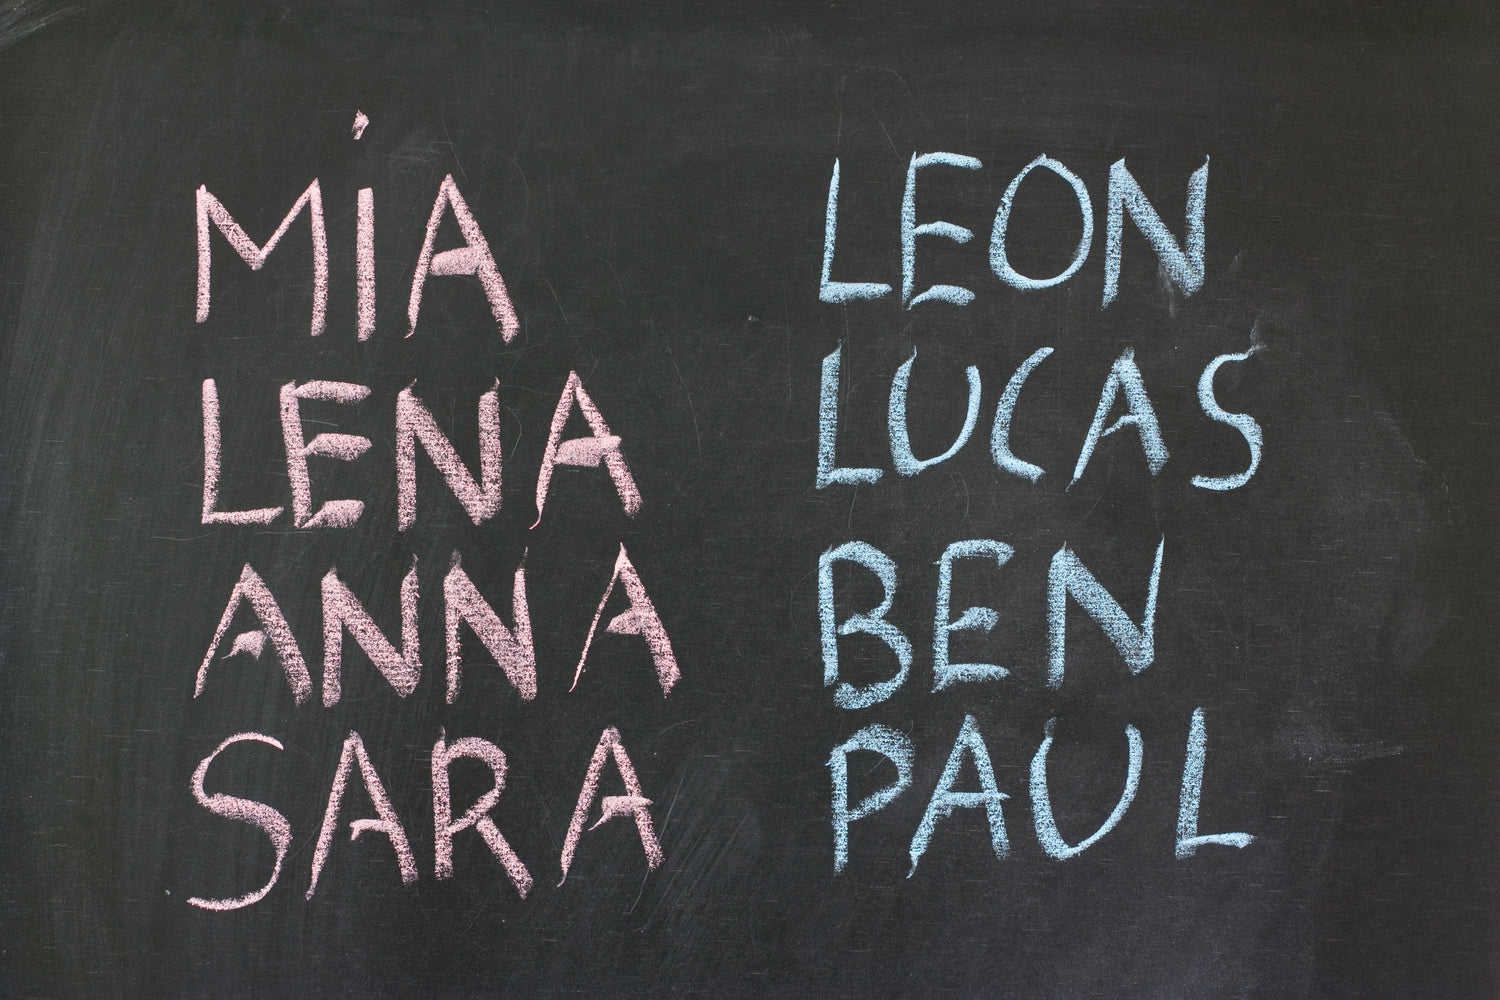 MiA
LENA
ANNA
SARA
LEON
LUCAS
BEN
PAUL